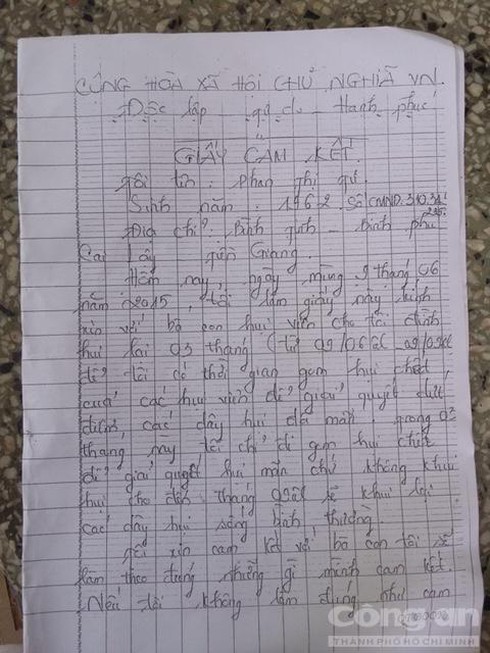 CỘNG HÒA XÃ HỘI CHỦ NGHĨA VN.
Độc lập - tự do - Hạnh phúc
GIẤY CAM KẾT.
Tôi tên: Phan Thị Tư.
Sinh năm: 1962. Số CMND: 310.34
Địa chỉ: Bình - Bình Phú
Cai Lậy Tiền Giang.
Hôm nay, ngày mùng 9 tháng 06
năm 2015, tôi làm giấy này kính
xin với bà con hụi viên cho tôi đình
hụi lại 03 tháng (từ 09/06âl - 09/09âl
để tôi có thời gian gom hụi chết
của các hụi viên để giải quyết dứt
điểm các dây hụi đã mãn. Trong 03
tháng này tôi chỉ đi gom hụi chết
để giải quyết hụi mãn chứ không khui
hụi cho đến tháng 09âl sẽ khui lại
các dây hụi sống bình thường.
Tôi xin cam kết với bà con tôi sẽ
làm theo đúng những gì mình cam kết.
Nếu tôi không làm đúng như cam
Công an
THÀNH PHỐ HỒ CHÍ MINH